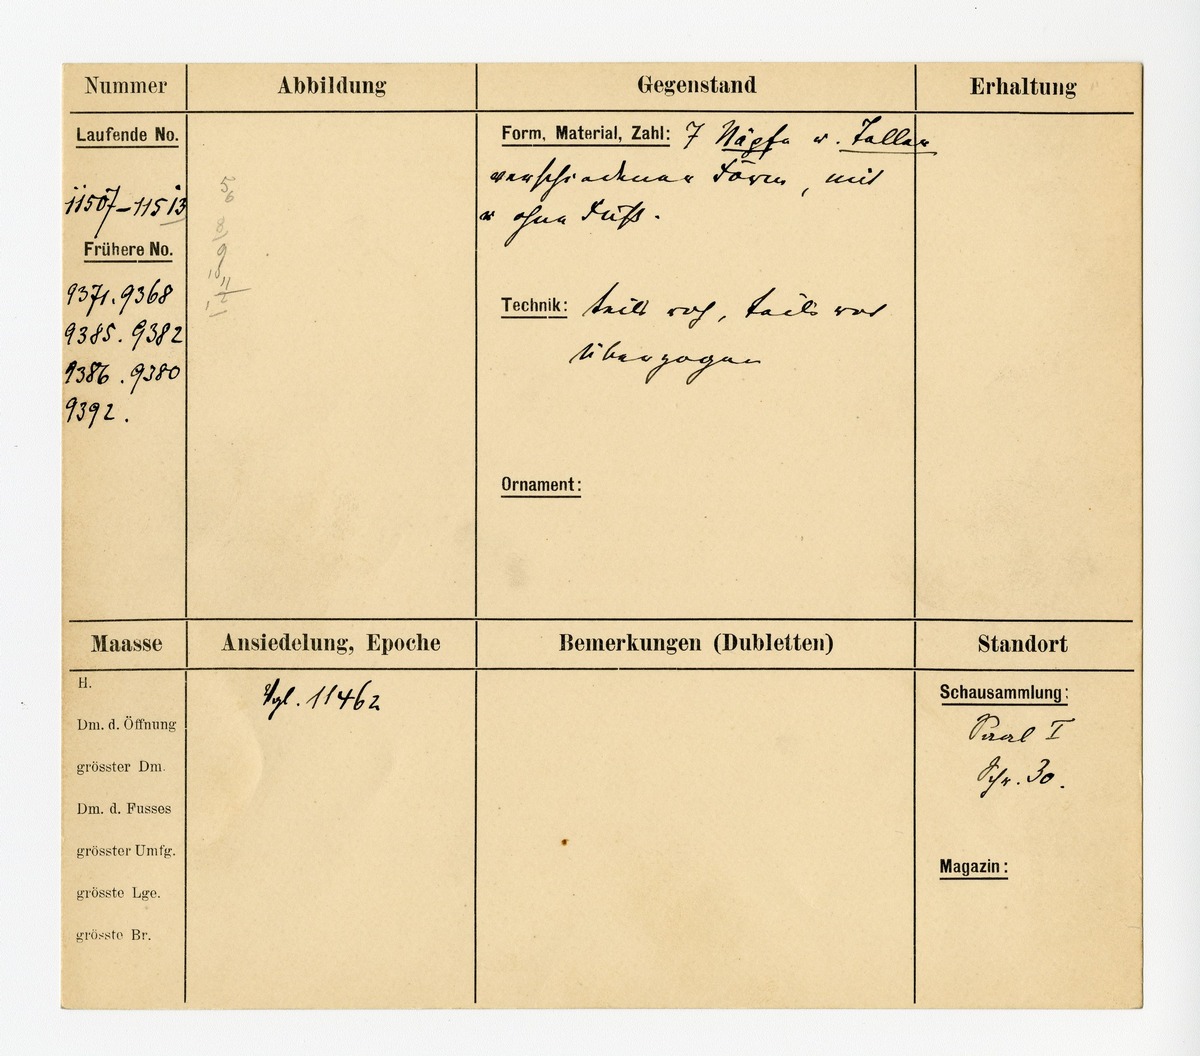 Nummer
Abbildung
Gegenstand
Erhaltung
Laufende No.
11507–11513
Frühere No.
9371. 9368
9385. 9382
9386. 9380
9392.
5
6
8
9
10
11
12
Form, Material, Zahl: 7 Näpfe u. Teller
verschiedener Form, mit
u ohne Fuß.
Technik: teils roh, teils rot
überzogen
Ornament:
Maasse
Ansiedelung, Epoche
Bemerkungen (Dubletten)
Standort
H.
Dm. d. Öffnung
grösster Dm.
Dm. d. Fusses
grösster Umfg.
grösste Lge.
grösste Br.
Vgl. 11462
Schausammlung:
Saal I
Schr. 30.
Magazin: